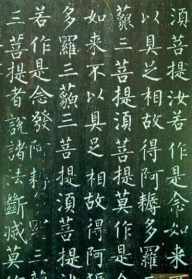 湏菩提汝若作是念如
以具足相故得阿耨多羅
藐三菩提湏菩提莫作是
如來不以具足相故得阿耨
多羅三藐三菩提湏菩提
若作是念發阿耨多羅三
三菩提者說諸法斷滅莫作